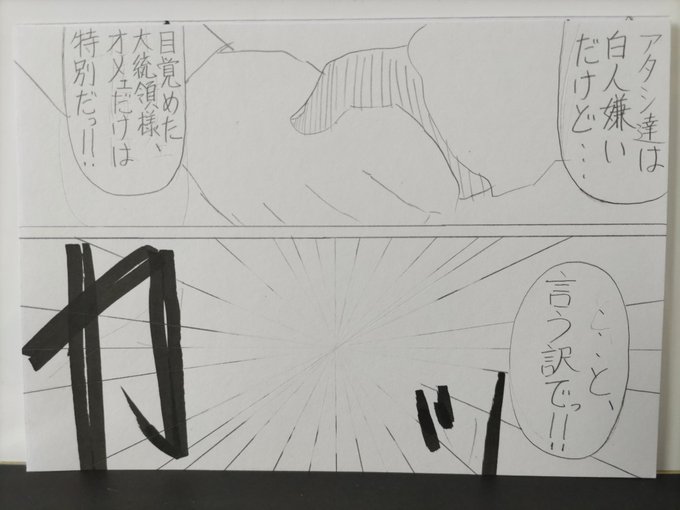 アタシ達は
白人嫌い
だけど…
目覚めた
大統領様、
オメェだけは
特別だっ!!
と、
言う訳でっ!!
カッ